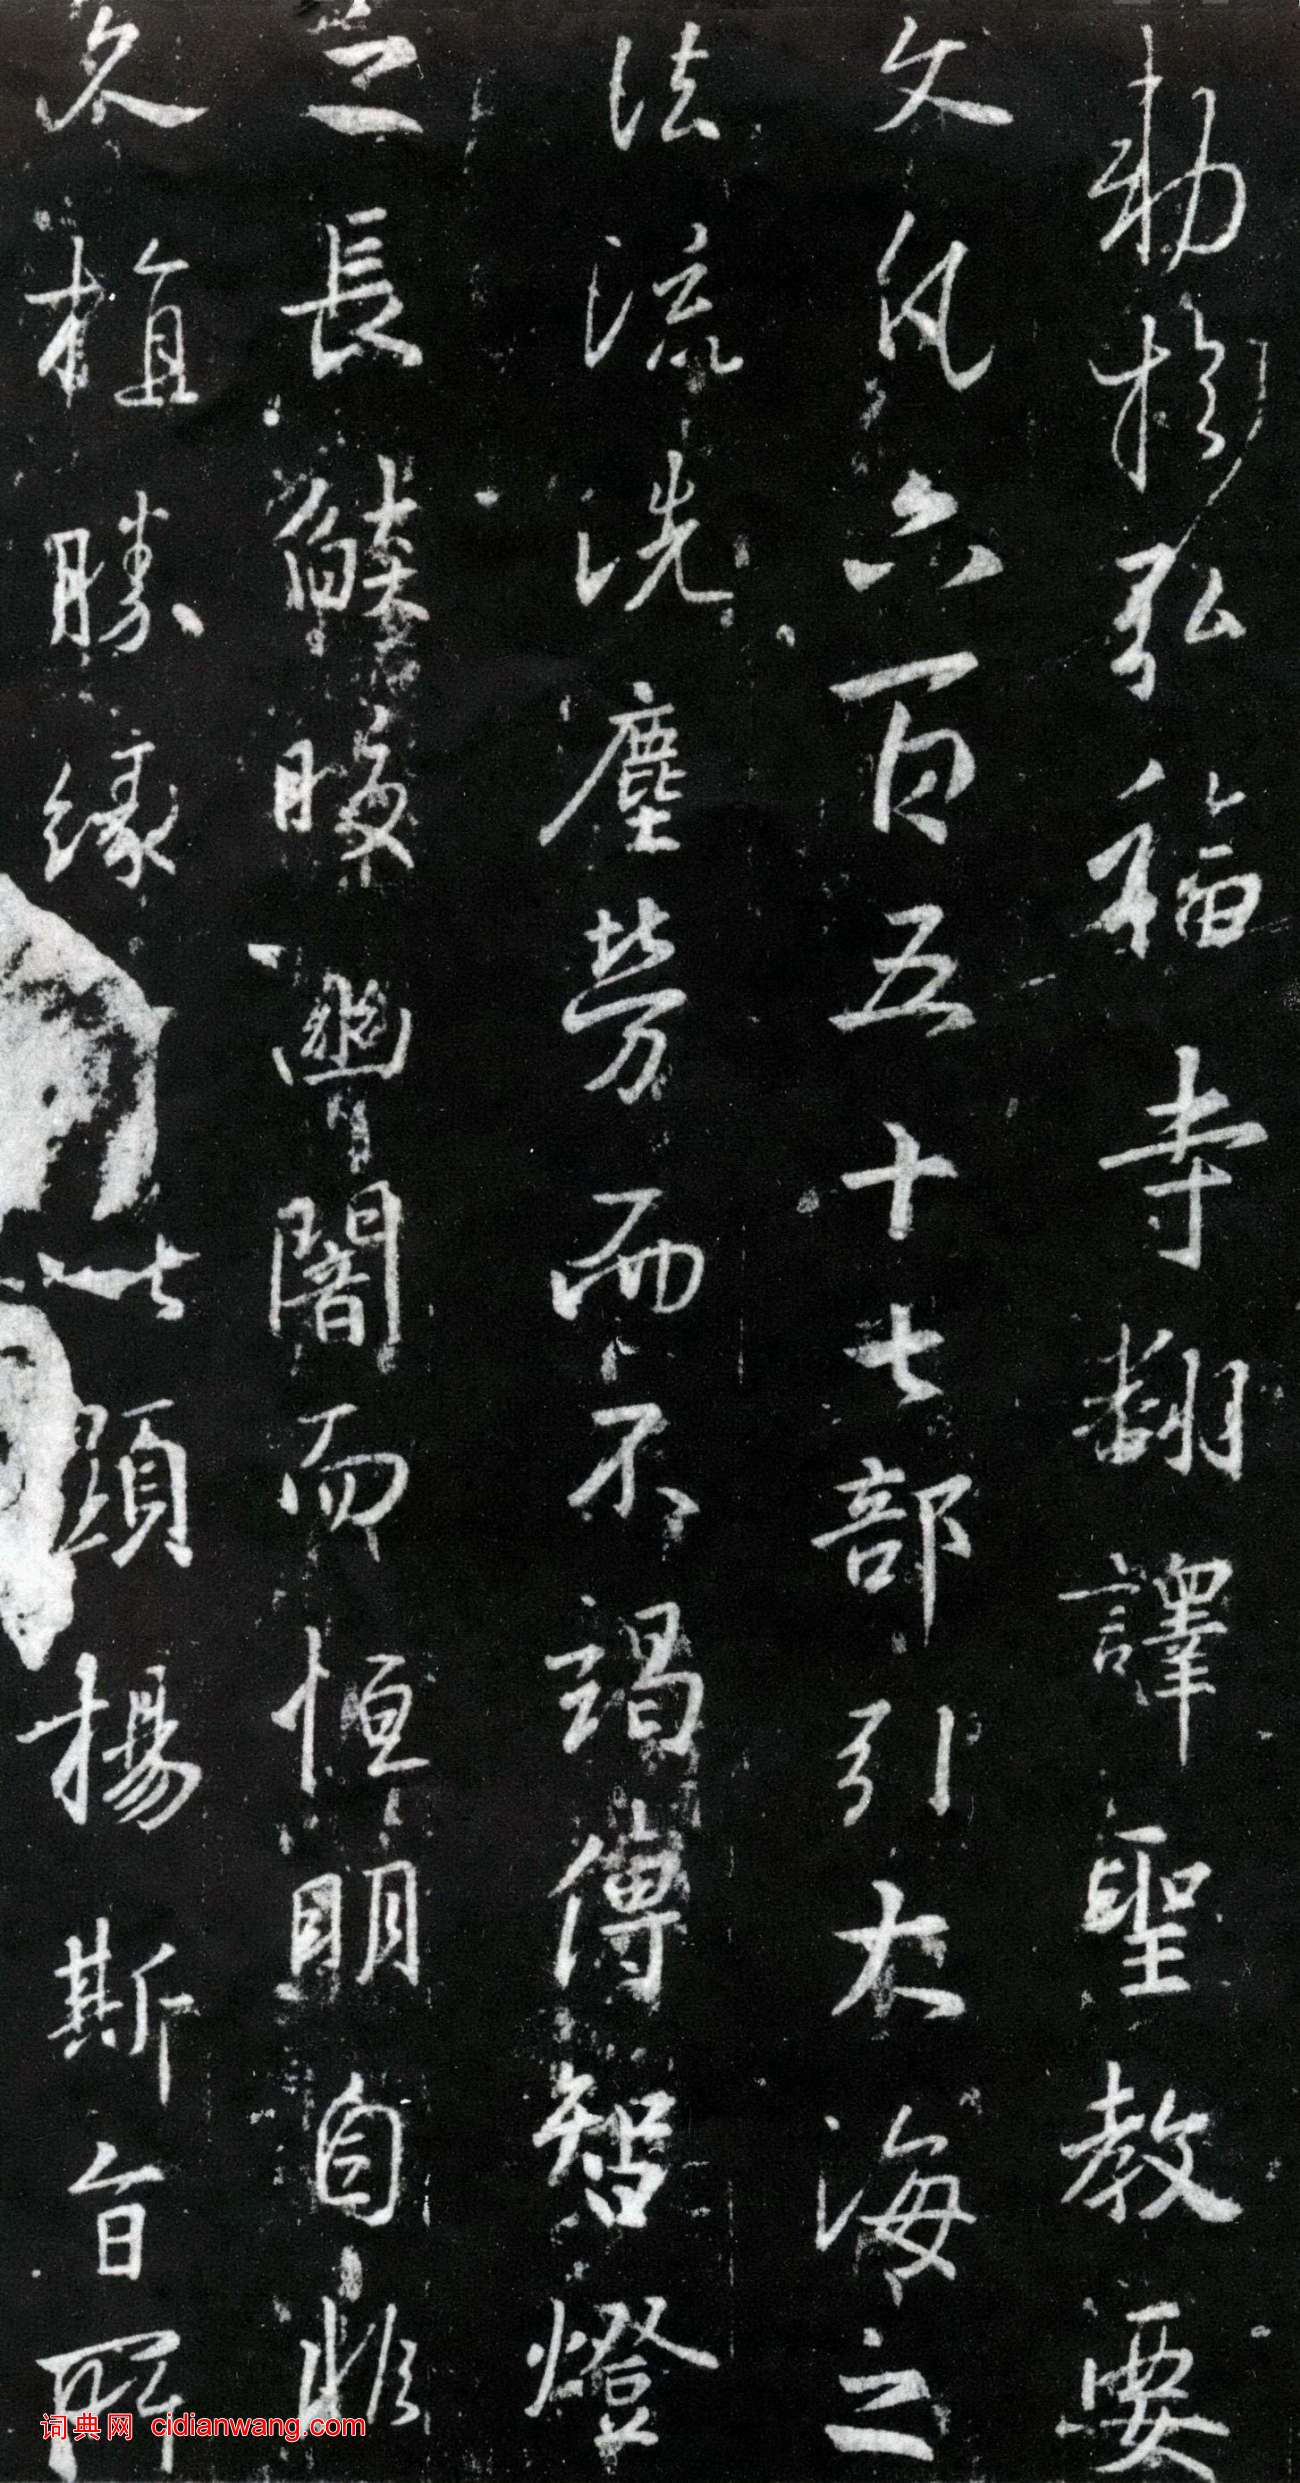 勅於弘福寺翻譯聖教要
文凡六百五十七部引大海之
法流洗塵勞而不竭傳智燈
之長燄皎幽闇而恒明自非
久植勝緣以顯揚斯旨所
词典网 cidianwang.com